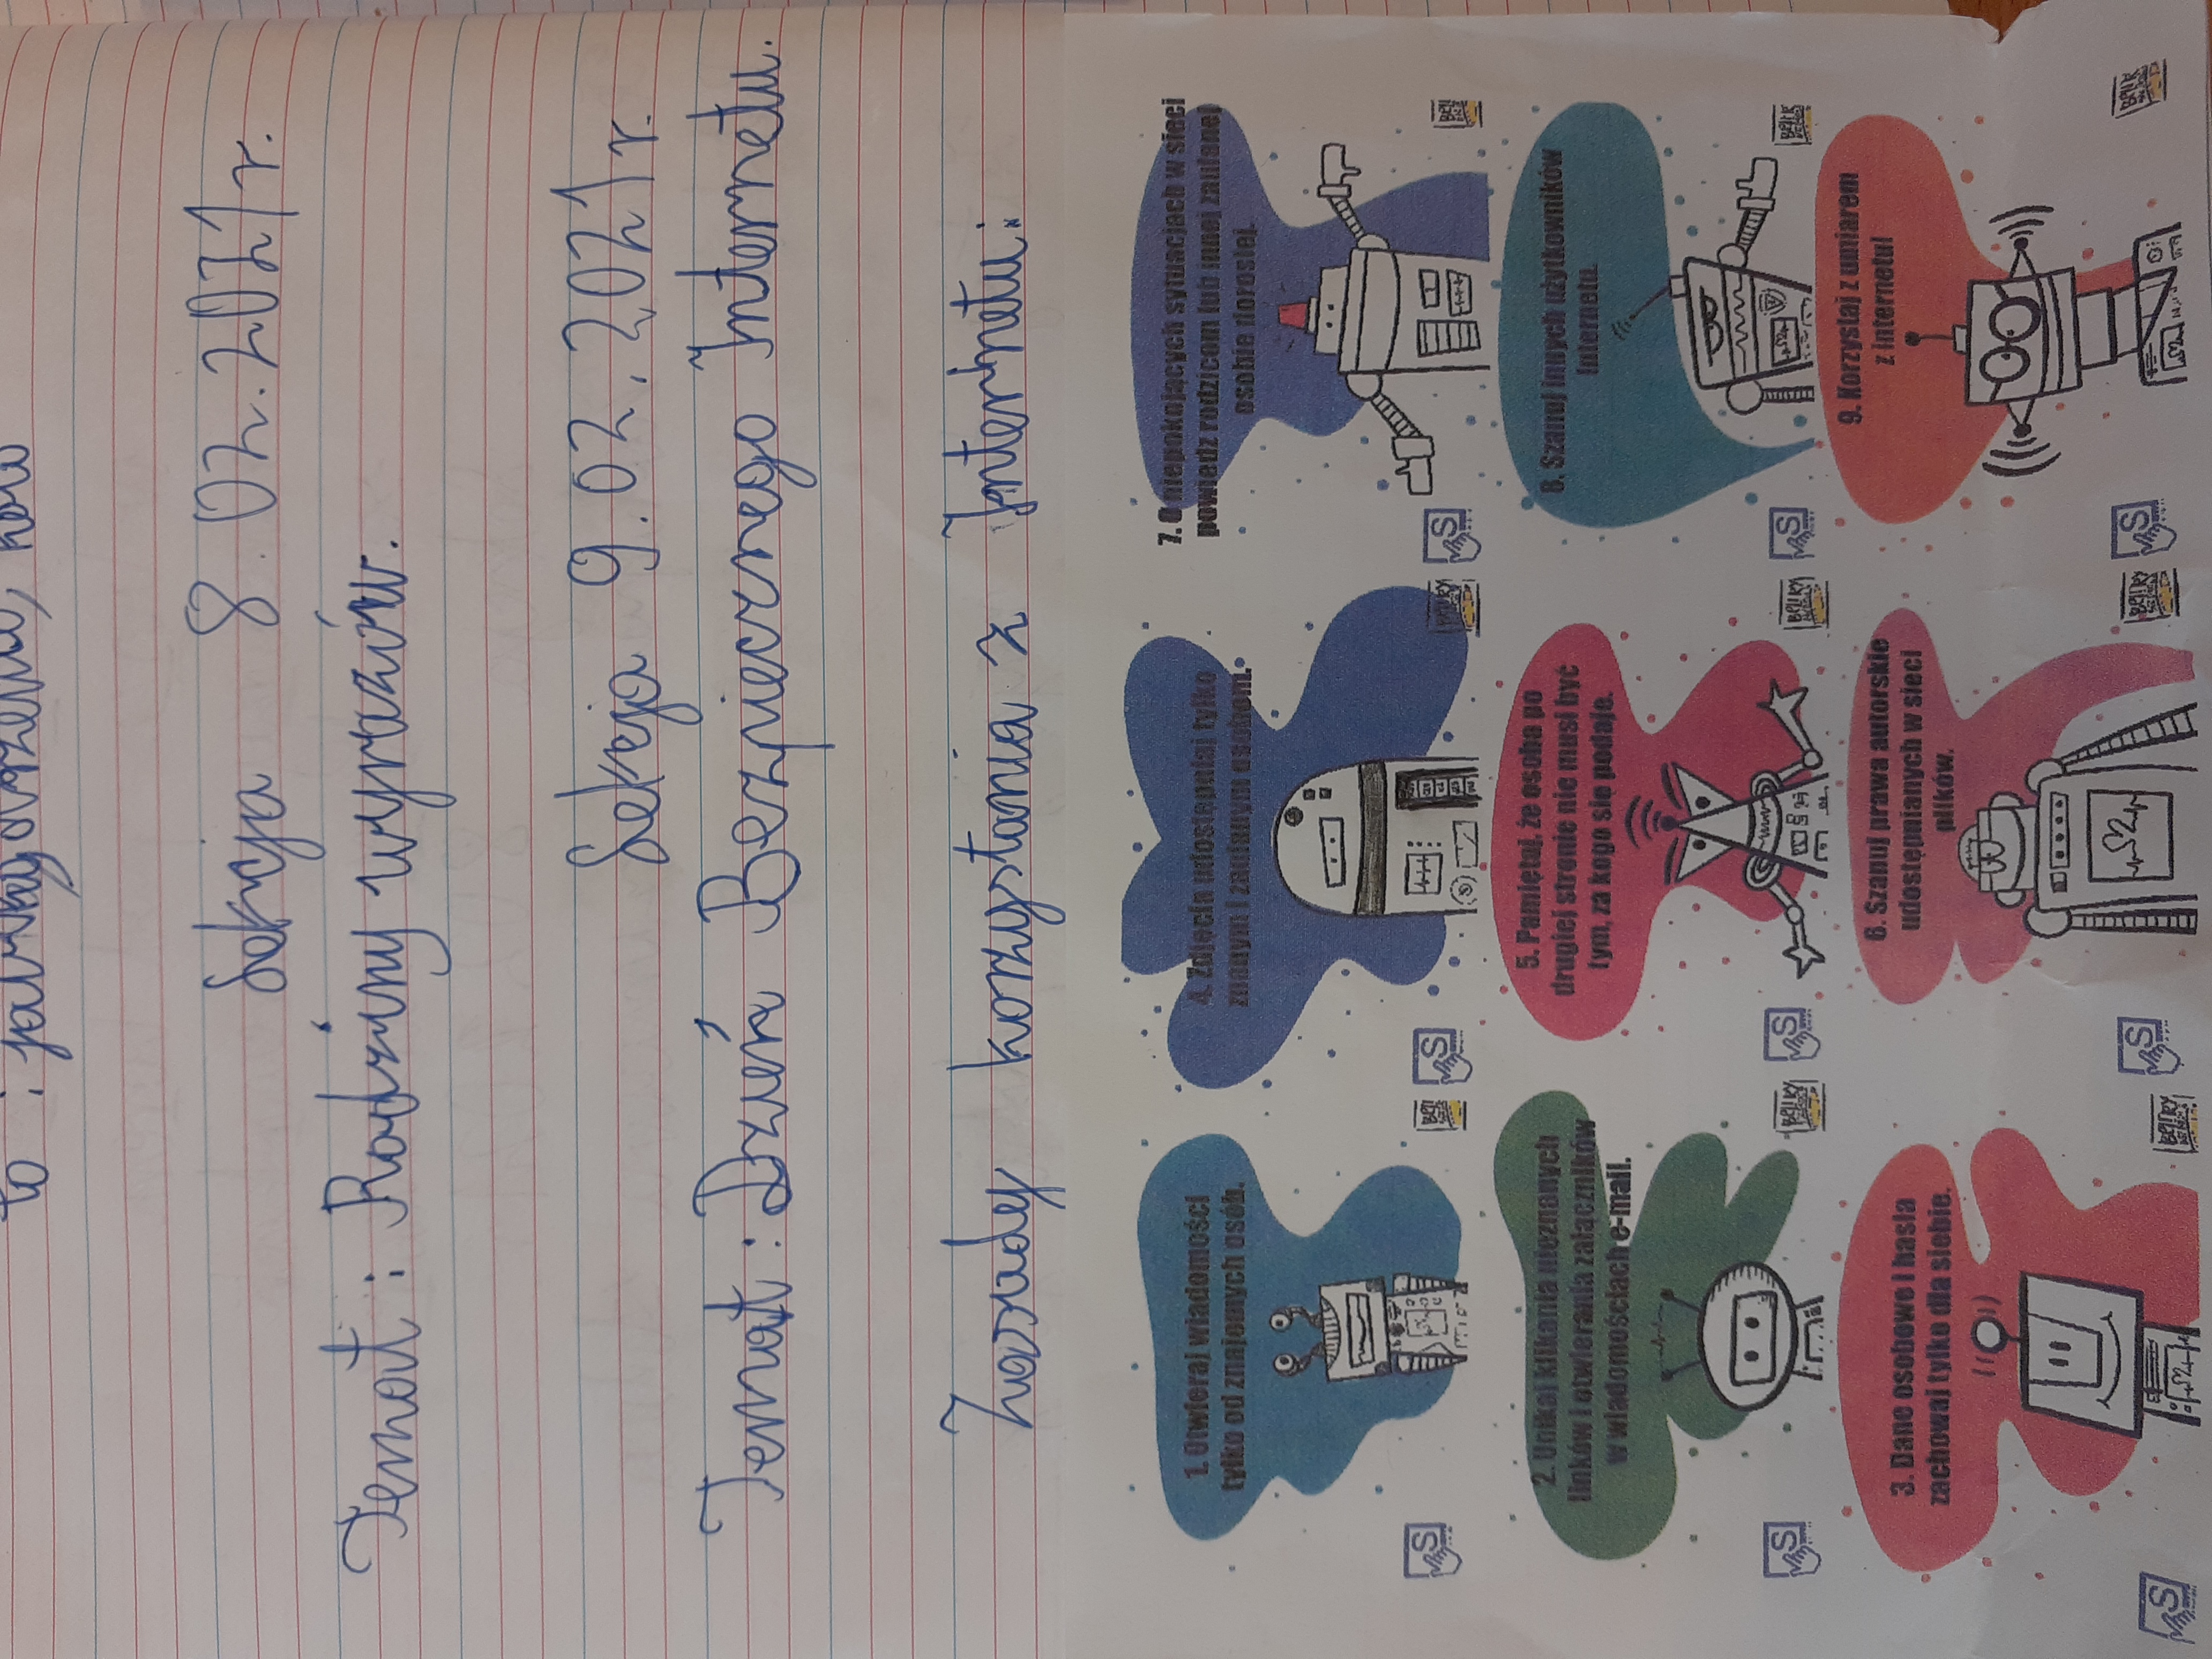 to :
Lekcja 8.02.2021r.
Temat: Rodziny wyrazów.
Lekcja 9.02.2021r.
Temat: Dzień Bezpiecznego Internetu.
Zasady korzystania z Internetu:
1. Otwieraj wiadomości
tylko od znajomych osób.
2. Unikaj klikania nieznanych
linków i otwierania załączników
w wiadomościach e-mail.
3. Dane osobowe i hasła
zachowaj tylko dla siebie.
4. Zdjęcia udostępniaj tylko
znanym i zaufanym osobom.
5. Pamiętaj, że osoba po
drugiej stronie nie musi być
tym, za kogo się podaje.
6. Szanuj prawa autorskie
udostępnianych w sieci
plików.
7. O niepokojących sytuacjach w sieci
powiedz rodzicom lub innej zaufanej
osobie dorosłej.
8. Szanuj innych użytkowników
internetu.
9. Korzystaj z umiarem
z internetu!